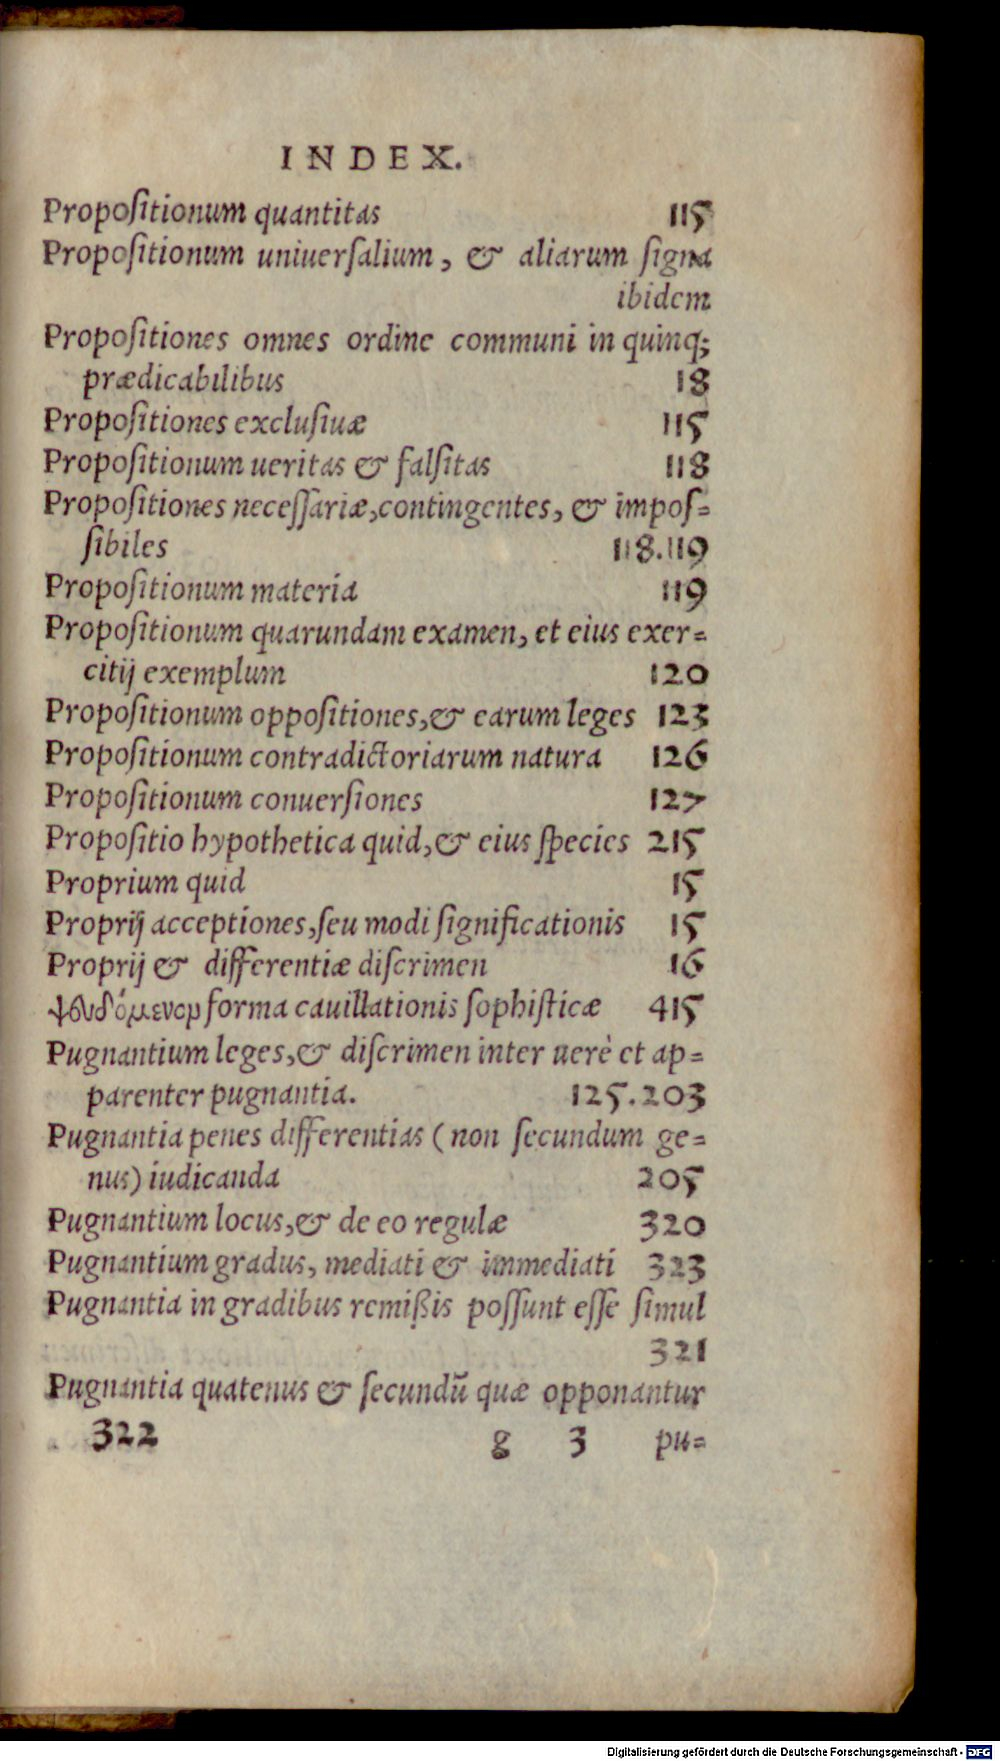 INDEX.
Propoſitionum quantitas 115
Propoſitionum uniuerſalium, & aliarum ſigna
ibidem
Propoſitiones omnes ordine communi in quinq;
prædicabilibus 18
Propoſitiones excluſiuæ 115
Propoſitionum ueritas & falſitas 118
Propoſitiones neceſſariæ,contingentes, & impoſ=
ſibiles 118.119
Propoſitionum materia 119
Propoſitionum quarundam examen, et eius exer=
citij exemplum 120
Propoſitionum oppoſitiones,& earum leges 123
Propoſitionum contradictoriarum natura 126
Propoſitionum conuerſiones 127
Propoſitio hypothetica quid,& eius ſpecies 215
Proprium quid 15
Proprij acceptiones,ſeu modi ſignificationis 15
Proprij & differentiæ diſcrimen 16
ψευδόμενον forma cauillationis ſophiſticæ 415
Pugnantium leges,& diſcrimen inter uerè et ap=
parenter pugnantia. 125.203
Pugnantia penes differentias (non ſecundum ge=
nus) iudicanda 205
Pugnantium locus,& de eo regulæ 320
Pugnantium gradus, mediati & immediati 323
Pugnantia in gradibus remißis poſſunt eſſe ſimul
321
Pugnantia quatenus & ſecundũ quæ opponantur
322 g 3 pu=
Digitalisierung gefördert durch die Deutsche Forschungsgemeinschaft - DFG